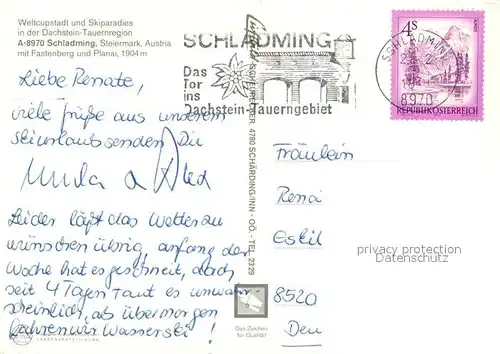 Weltcupstadt und Skiparadies
in der Dachstein-Tauernregion
A-8970 Schladming, Steiermark, Austria
mit Fastenberg und Planai, 1904 m
Liebe Renate,
viele Grüße aus unserem
Skiurlaub senden Dir
Leider läßt das Wetter zu
wünschen übrig, anfang der
Woche hat es geschneit, doch
seit 4 Tagen Taut es unwahr
scheinlich, ab übermorgen
fahren wir Wasserski!
SCHLADMING
Das
Tor
ins
Dachstein-Tauerngebiet
SCHLADMING
8970
4S
REPUBLIK ÖSTERREICH
4780 SCHÄRDING/INN - OÖ. - TEL. 2329
Das Zeichen
für Qualität
Fräulein
8520
protection privacy
Datenschutz